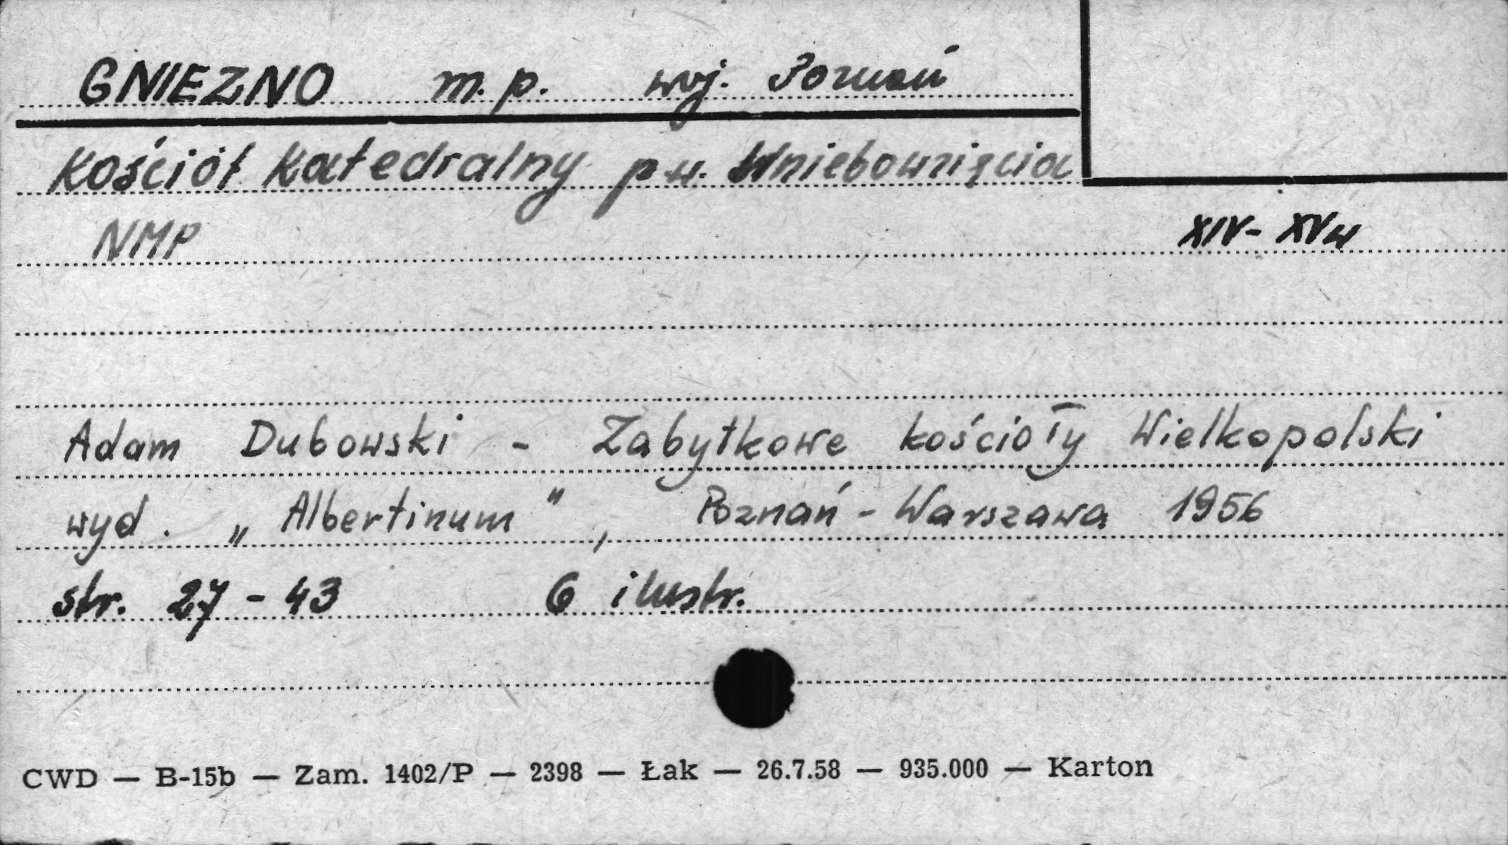 GNIEZNO m.p. woj. Poznań
Kościół katedralny p.w. Wniebowzięcia
NMP XIV-XVw
Adam Dubowski - Zabytkowe kościoły Wielkopolski
wyd. „Albertinum", Poznań - Warszawa 1956
str. 27-43 6 ilustr.
CWD — B-15b — Zam. 1402/P — 2398 — Łak — 26.7.58 — 935.000 — Karton